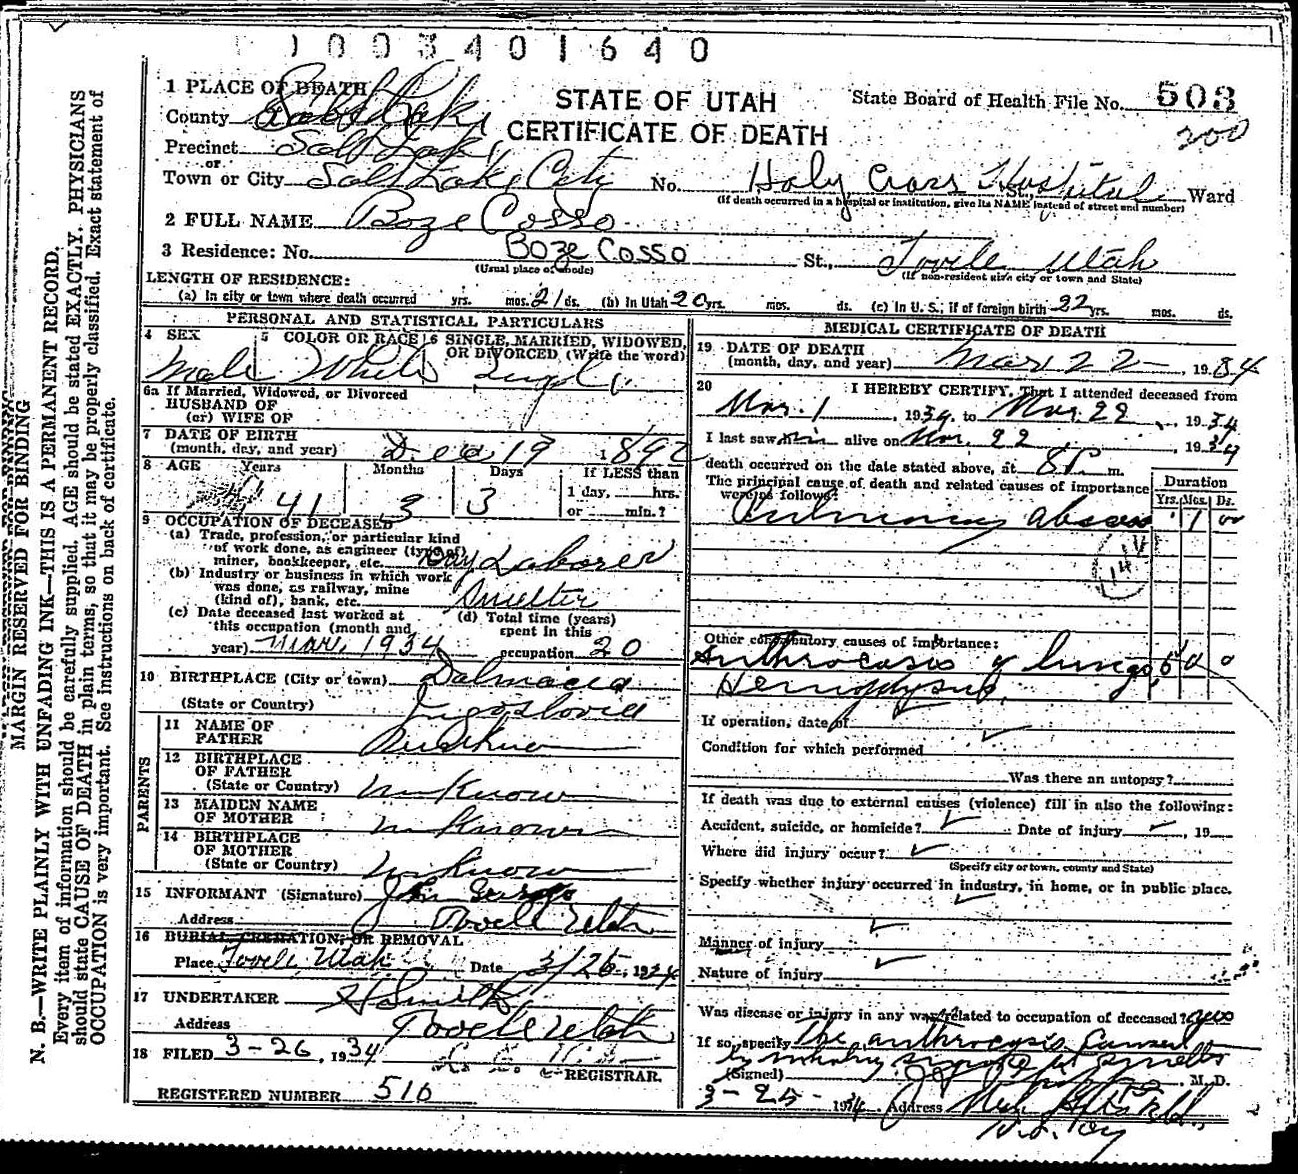 1003401640
1 PLACE OF DEATH
STATE OF UTAH
CERTIFICATE OF DEATH
State Board of Health File No. 503
200
County Salt Lake
Precinct Salt Lake
or
Town or City Salt Lake City No. Holy Cross Hospital St., Ward
(If death occurred in a hospital or institution, give its NAME instead of street and number)
2 FULL NAME Boze Cosso
3 Residence: No. Boze Cosso St., Tooele Utah
(Usual place of abode) (If non-resident give city or town and State)
LENGTH OF RESIDENCE:
(a) In city or town where death occurred yrs. mos. 21 ds. (b) In Utah 20 yrs. mos. ds. (c) In U. S., if of foreign birth 22 yrs. mos. ds.
PERSONAL AND STATISTICAL PARTICULARS
4 SEX 5 COLOR OR RACE 6 SINGLE, MARRIED, WIDOWED, OR DIVORCED (Write the word)
Male White Single
6a If Married, Widowed, or Divorced
HUSBAND OF
(or) WIFE OF
7 DATE OF BIRTH
(month, day, and year) Dec 19 1892
8 AGE Years Months Days If LESS than
41 3 3 1 day, hrs.
or min.?
9 OCCUPATION OF DECEASED
(a) Trade, profession, or particular kind
of work done, as engineer (type of)
miner, bookkeeper, etc. Day Laborer
(b) Industry or business in which work
was done, as railway, mine
(kind of), bank, etc. Smelter
(c) Date deceased last worked at
this occupation (month and
year) Mar. 1934
(d) Total time (years)
spent in this
occupation 20
10 BIRTHPLACE (City or town) Dalmacia
(State or Country) Jugoslovia
PARENTS
11 NAME OF
FATHER
12 BIRTHPLACE
OF FATHER
(State or Country) Unknown
13 MAIDEN NAME
OF MOTHER Unknown
14 BIRTHPLACE
OF MOTHER
(State or Country) Unknown
15 INFORMANT (Signature) John
Address Tooele Utah
16 BURIAL, CREMATION, OR REMOVAL
Place Tooele Utah Date 3/25, 1934
17 UNDERTAKER
Address Tooele Utah
18 FILED 3-26, 1934
REGISTRAR.
REGISTERED NUMBER 510
MEDICAL CERTIFICATE OF DEATH
19 DATE OF DEATH
(month, day, and year) Mar 22, 1934
20 I HEREBY CERTIFY, That I attended deceased from
Mar. 1, 1934, to Mar. 22, 1934
I last saw him alive on Mar. 22, 1934
death occurred on the date stated above, at 8 P. m.
The principal cause of death and related causes of importance
were as follows:
Duration
Yrs. Mos. Ds.
Pulmonary abscess 1
Other contributory causes of importance:
Anthrocosis of lungs 5 0 0
If operation, date of
Condition for which performed
Was there an autopsy?
If death was due to external causes (violence) fill in also the following:
Accident, suicide, or homicide? Date of injury , 19
Where did injury occur?
(Specify city or town, county and State)
Specify whether injury occurred in industry, in home, or in public place.
Manner of injury
Nature of injury
Was disease or injury in any way related to occupation of deceased? yes
If so, specify The anthrocosis caused
by inhaling smoke at smelter
(Signed) M. D.
3-25-1934 Address
MARGIN RESERVED FOR BINDING
N. B.—WRITE PLAINLY WITH UNFADING INK—THIS IS A PERMANENT RECORD.
Every item of information should be carefully supplied. AGE should be stated EXACTLY. PHYSICIANS
should state CAUSE OF DEATH in plain terms, so that it may be properly classified. Exact statement of
OCCUPATION is very important. See instructions on back of certificate.